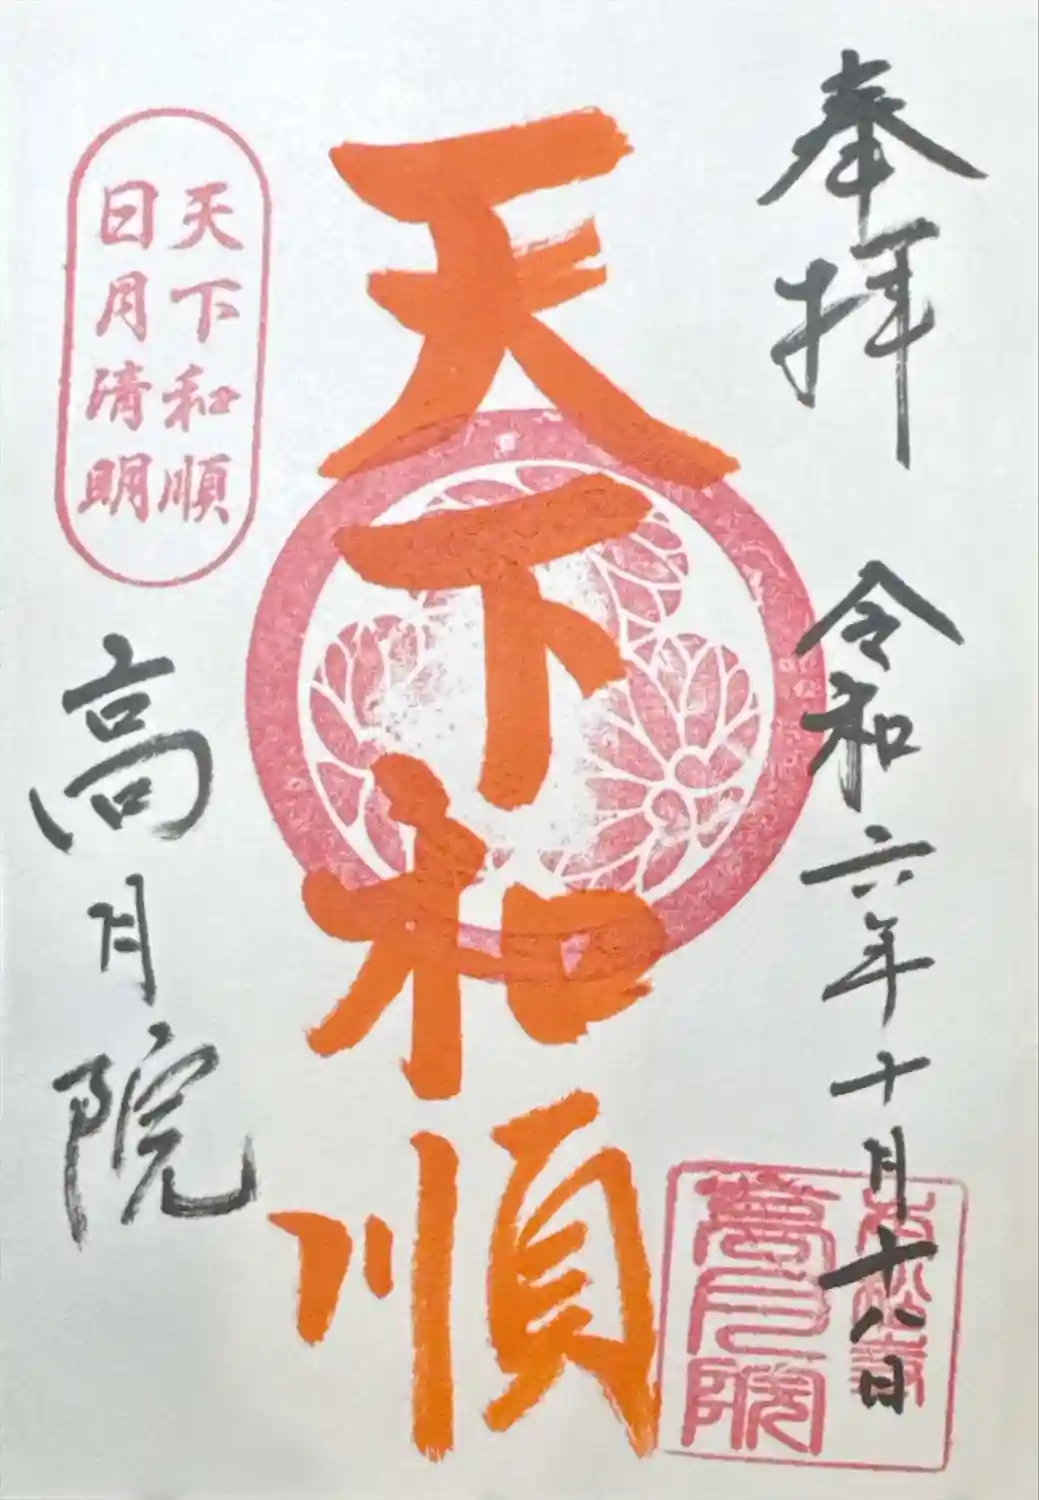 奉拝 令和六年十月十八日
天下和順
天下和順
日月清明
高月院